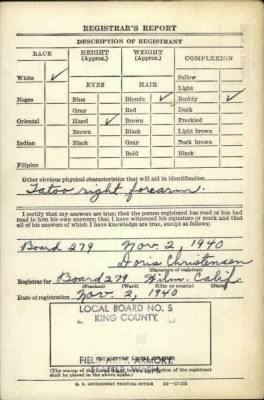 REGISTRAR'S REPORT
DESCRIPTION OF REGISTRANT
RACE
HEIGHT
(Approx.)
WEIGHT
(Approx.)
COMPLEXION
White ✓
Sallow
Light
EYES
HAIR
Negro
Blue
Blonde ✓
Ruddy ✓
Gray
Red
Dark
Oriental
Hazel ✓
Brown
Freckled
Brown
Black
Light brown
Indian
Black
Gray
Dark brown
Bald
Black
Filipino
Other obvious physical characteristics that will aid in identification
Tatoo right forearm.
I certify that my answers are true; that the person registered has read or has had
read to him his own answers; that I have witnessed his signature or mark and that
all of his answers of which I have knowledge are true, except as follows:
Board 279 Nov. 2, 1940
Doris Christensen
(Signature of registrar)
Registrar for Board 279 Wilm. Calif.
(Precinct) (Ward) (City or county) (State)
Date of registration Nov. 2, 1940
LOCAL BOARD NO. 5
KING COUNTY,
ARMORY
SEATTLE, WASH.
(The stamp of the Local Board having jurisdiction of the registrant
shall be placed in the above space.)
U. S. GOVERNMENT PRINTING OFFICE 16—17105